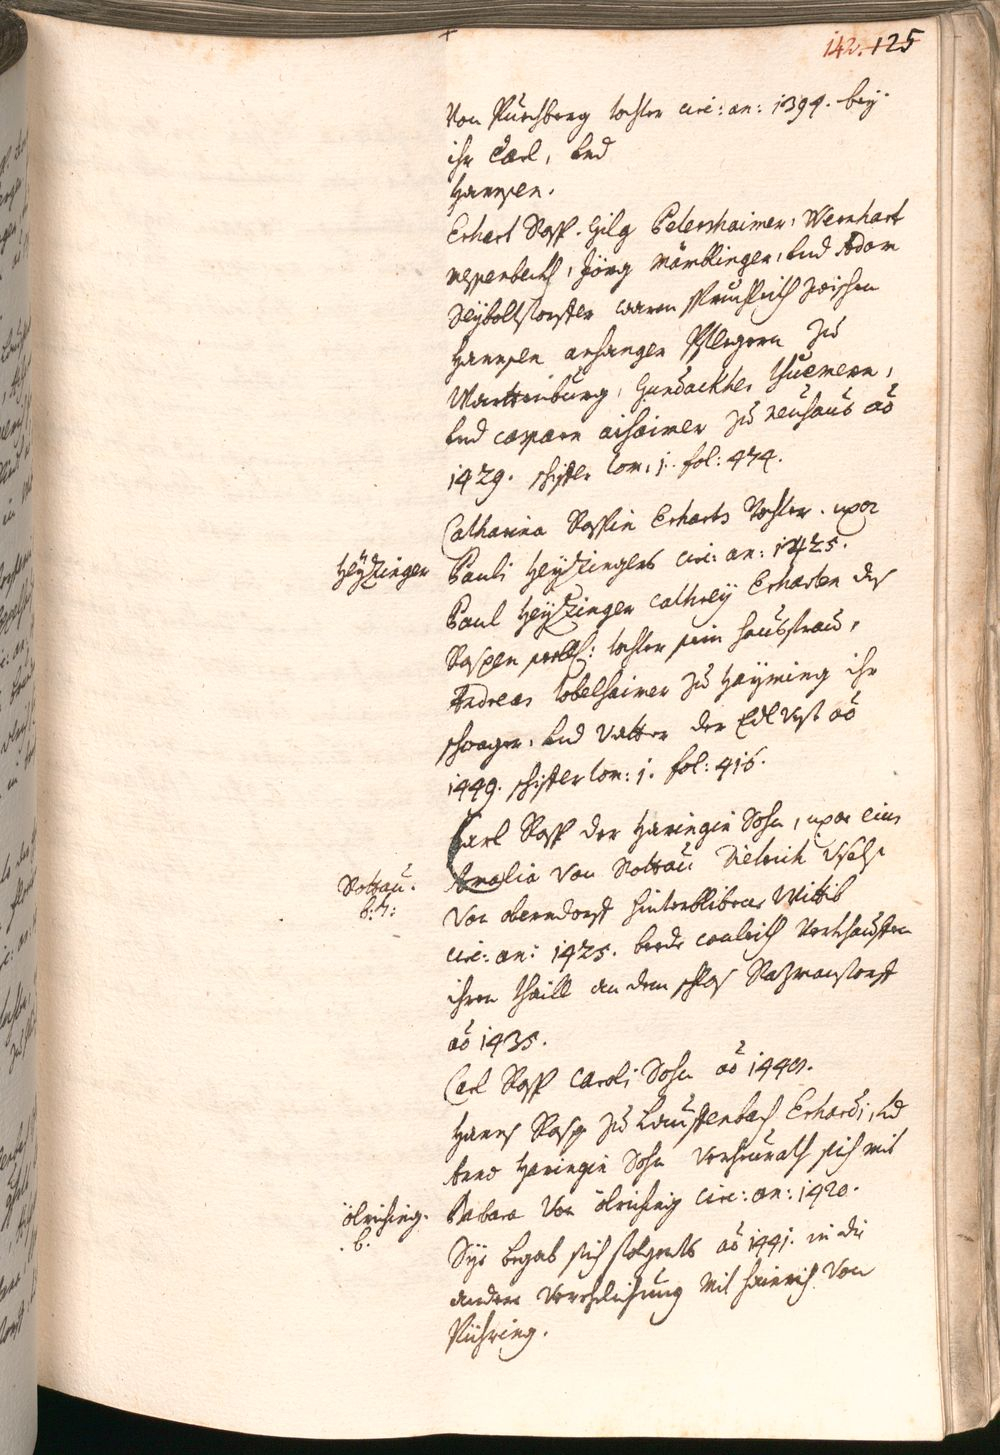 142. 125
Von Puechberg tochter circ: an: 1394. bey
ihr Carl, und
Hannsen.
Erhart Rasp. Gilg Petershaimer, Wernhart
messenbeckh, Jörg Märklinger, und Adam
Seyboltstorffer waren Spruchleith zwischen
Hannsen anhanger Pflegern zu
Warttenburg, Gundackher Thuemern,
und Casparn aihaimer zu neuhaus aõ
1429. schifer tom: 1. fol: 474.
Catharina Raspin Erharts tochter. uxor
Heyzinger Pauli Heyzingers circ: an: 1425.
Paul Heyzinger Cathrey Erharten des
Raspen seel: tochter sein hausfrau,
Andreas tobelhaimer zu Hayming ihr
schwager, und Vatter der Edl Vest aõ
1449. schifer tom: 1. fol: 416.
Carl Rasp der Haringin Sohn, uxor eius
Nottau. Amalia Von Nottau Dietrich
b: Von oberndorff hinterblibene Wittib
circ: an: 1425. beede conleith Verkhaufften
ihren thaill an dem schlos Razmanstorff
aõ 1435.
Carl Rasp Caroli Sohn aõ 1440.
Hanns Rasp zu Lauffenbach Erhardi, und
Anna Haringin Sohn Verheurath sich mit
ölriching. Barbara Von ölriching circ: an: 1420.
b. Sye begab sich folgents aõ 1441. in die
andere Verehlichung mit hainrich Von
Pühring.